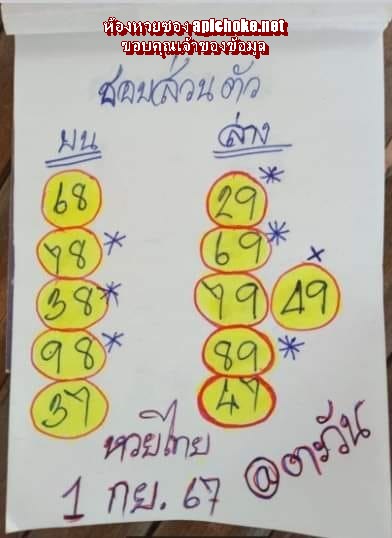 ห้องหวยซอง apichoke.net
ขอบคุณเจ้าของข้อมูล
ชอบส่วนตัว
บน ล่าง
68 29*
78* 69*
38* 79 49x
98* 89*
37 47
หวยไทย
1 กย. 67 @ตะวัน